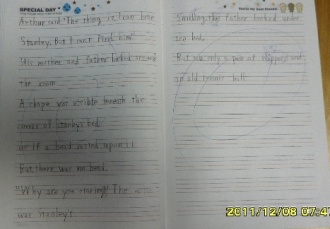 SPECIAL DAY
Arthur said "The thing is, I hear
Stanley. But I can't find him"
His mother and father looked around
the room.
A shape was visible beneath the
covers of Stanley's bed.
as if a hand rested upon it.
But there was no hand.
"Why are you staring?" The voice
was Stanley's.
Smiling, the father looked under
the bed.
But saw only a pair of slippers and
an old tennis ball.
2011/12/08 07:4